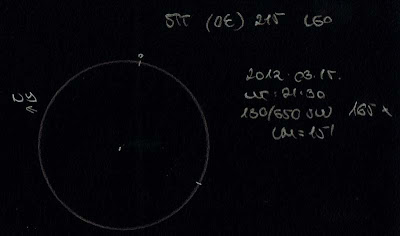 STT (OE) 215 LEO
2012.03.15.
UT: 21:30
130/650 SW 165x
LM=15'
NY